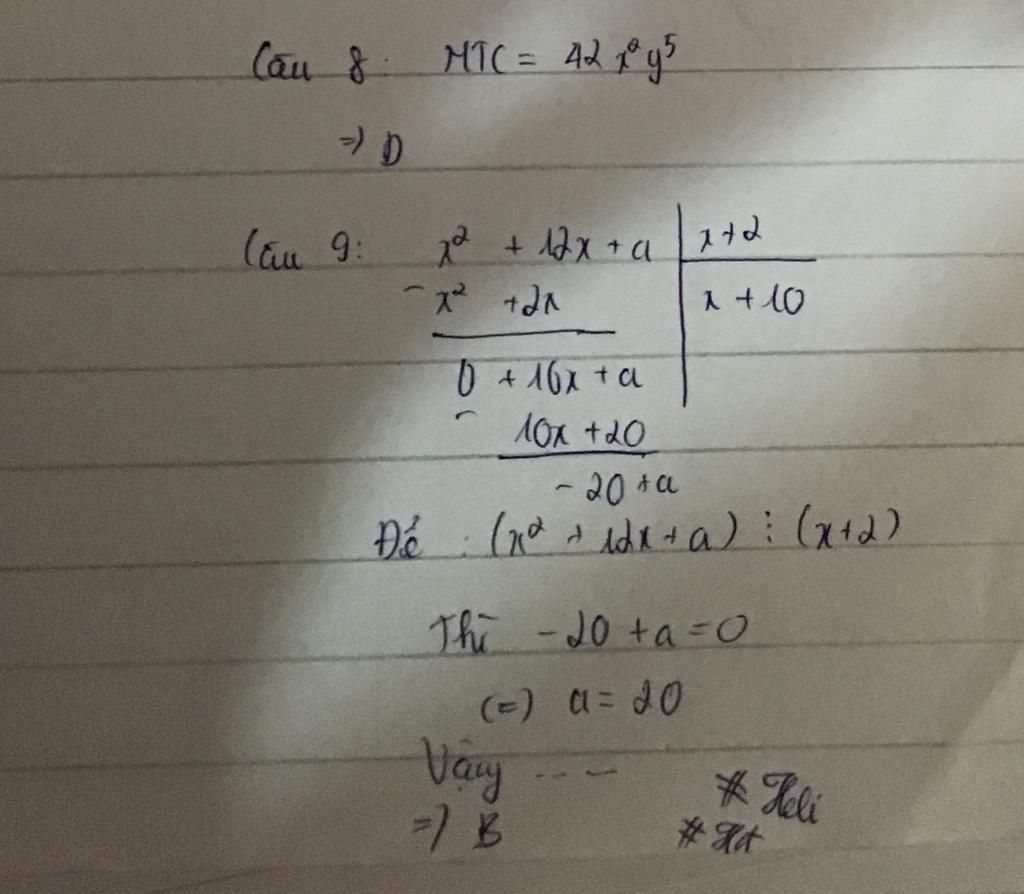 Câu 8: MTC = 42 x²y⁵
=) D
Câu 9: x² + 12x + a | x+2
- x² + 2x | x + 10
0 + 10x + a
- 10x + 20
- 20 + a
Để : (x² + 12x + a) ⋮ (x+2)
Thì - 20 + a = 0
(=) a = 20
Vậy ---
=) B
# Heli